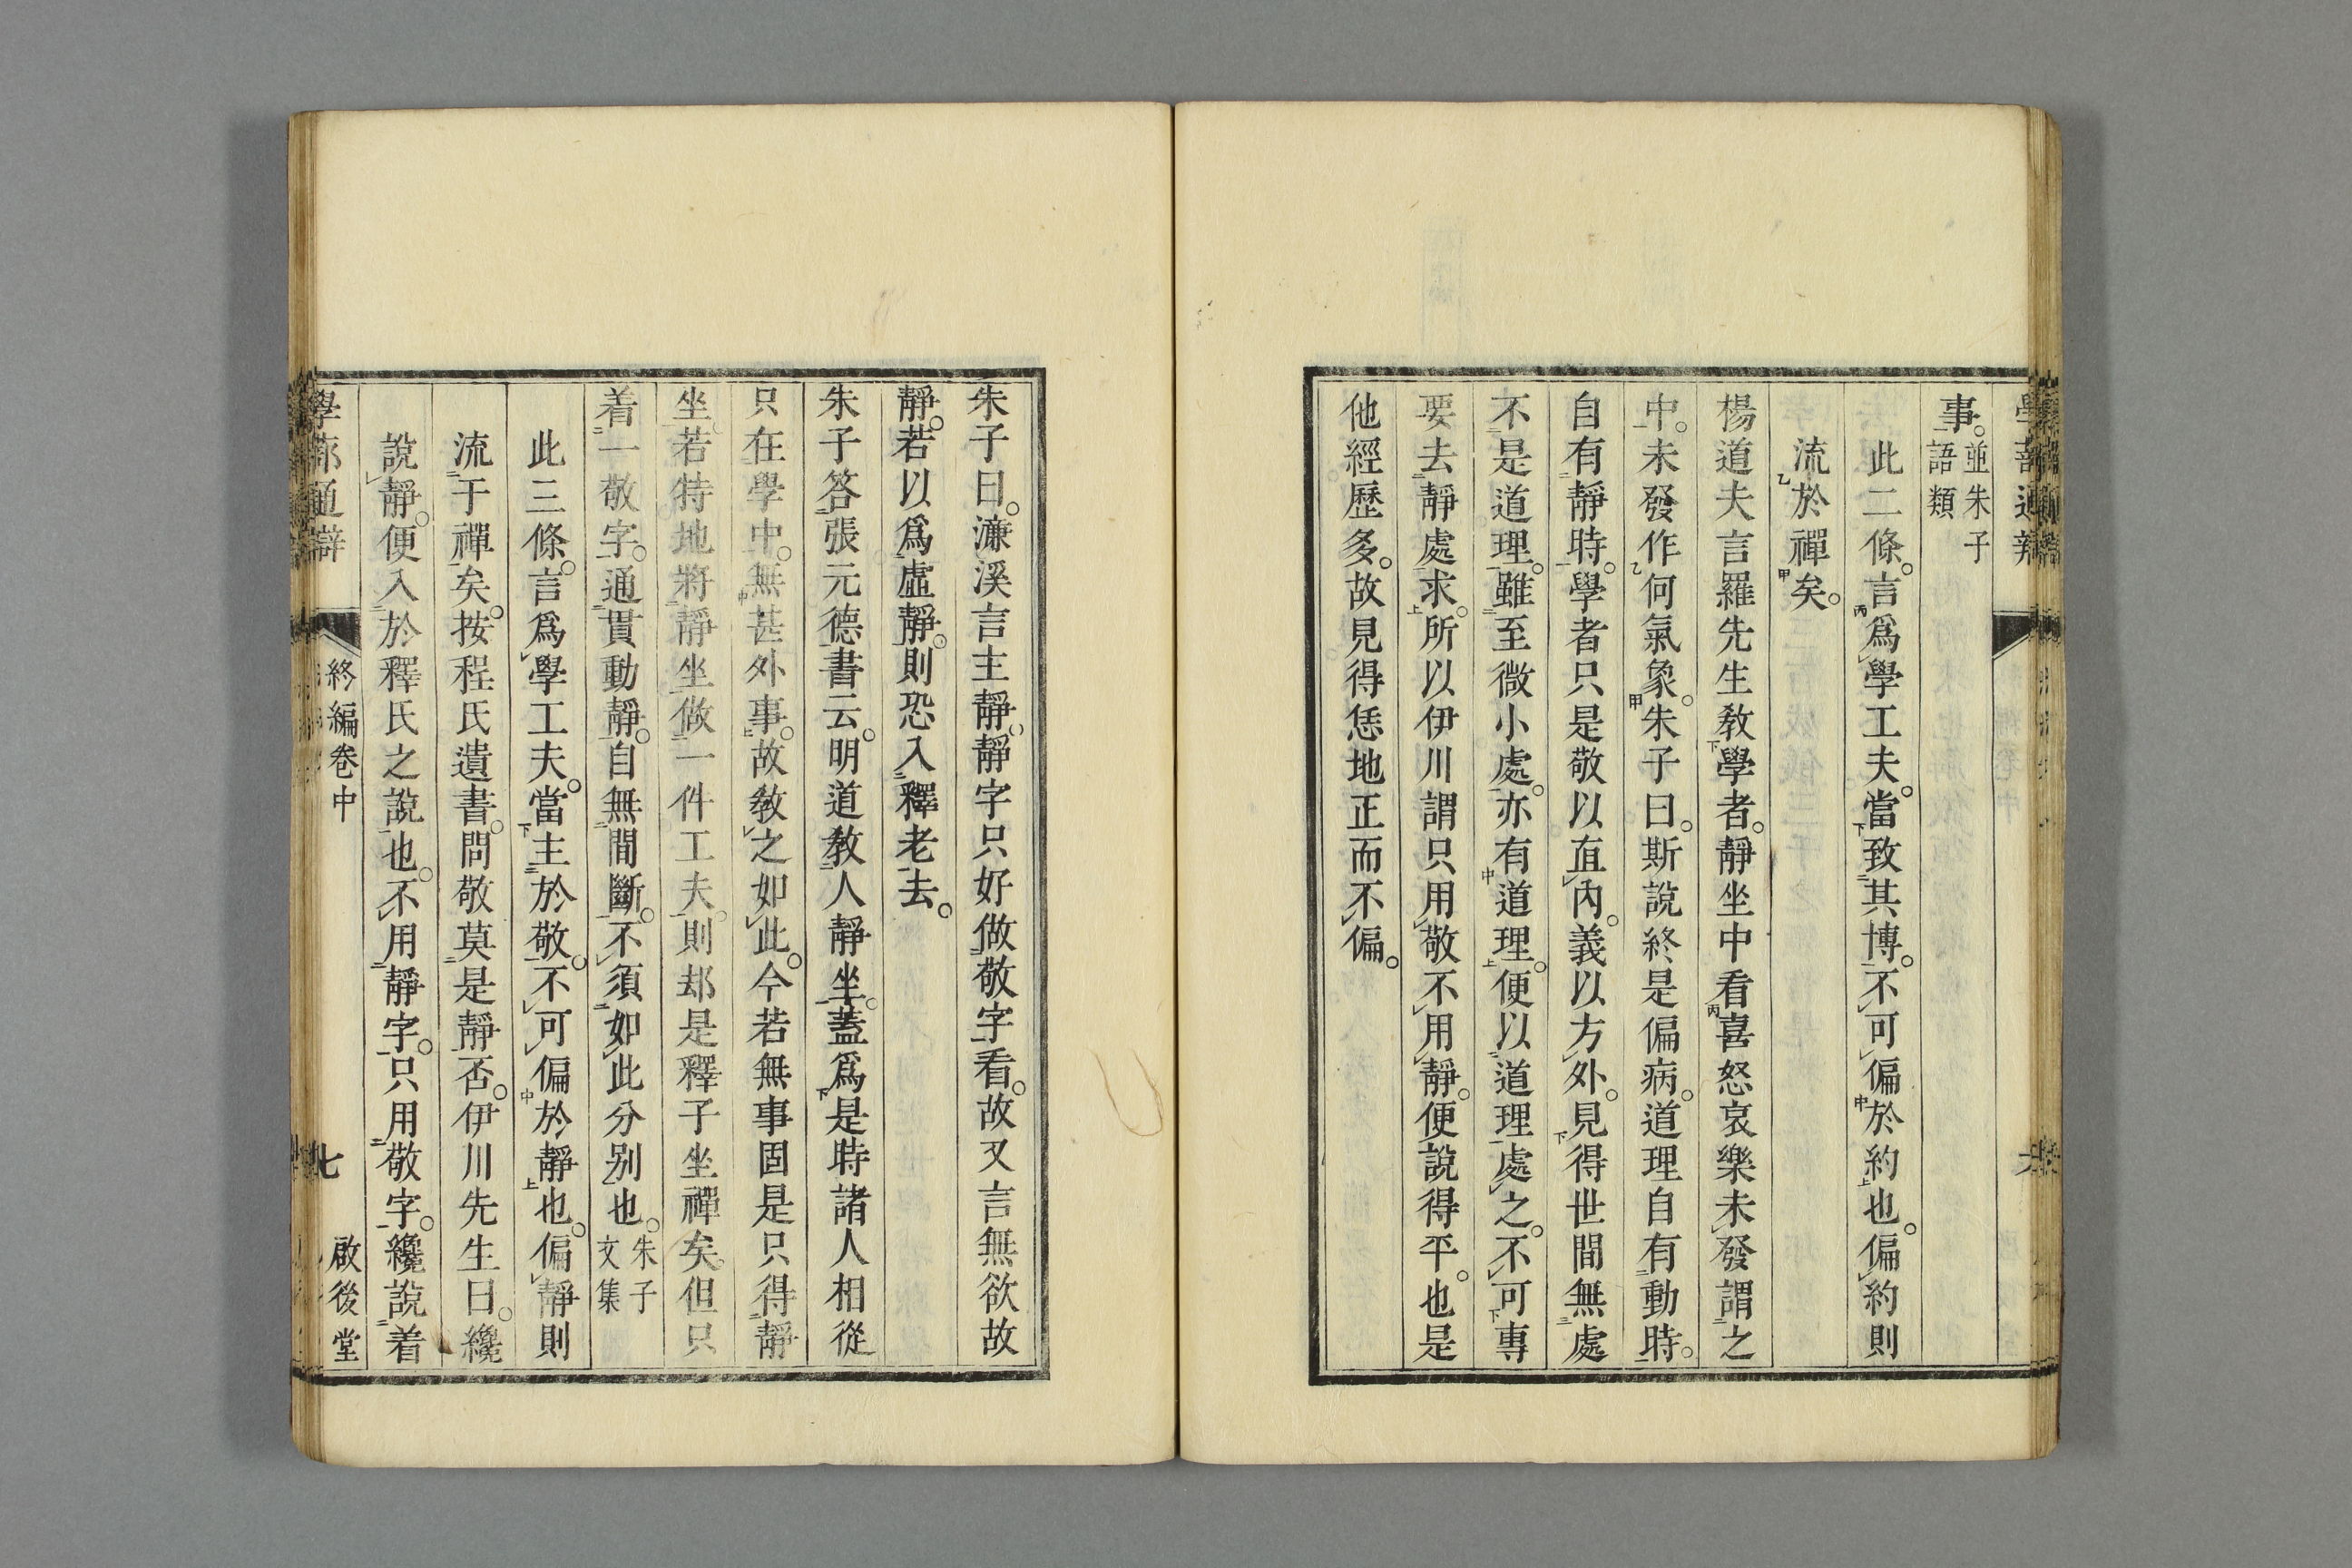 事。並朱子語類
此二條。言爲學工夫。當致其博。不可偏於約也。偏約則
流於禪矣。
楊道夫言羅先生教學者。靜坐中看喜怒哀樂未發謂之
中。未發作何氣象。朱子曰。斯說終是偏病。道理自有動時。
自有靜時。學者只是敬以直內。義以方外。見得世間無處
不是道理。雖至微小處。亦有道理。便以道理處之。不可專
要去靜處求。所以伊川謂只用敬不用靜。便說得平。也是
他經歷多。故見得恁地正而不偏。
朱子曰。濂溪言主靜。靜字只好做敬字看。故又言無欲故
靜。若以爲虛靜。則恐入釋老去。
朱子答張元德書云。明道教人靜坐。蓋爲是時諸人相從
只在學中。無甚外事。故教之如此。今若無事固是只得靜
坐。若特地將靜坐做一件工夫。則却是釋子坐禪矣。但只
着一敬字。通貫動靜。自無間斷。不須如此分別也。朱子文集
此三條。言爲學工夫。當主於敬。不可偏於靜也。偏靜則
流于禪矣。按程氏遺書。問敬莫是靜否。伊川先生曰。纔
說靜。便入於釋氏之說也。不用靜字。只用敬字。纔說着
學蔀通辯 終編卷中 七 啟後堂